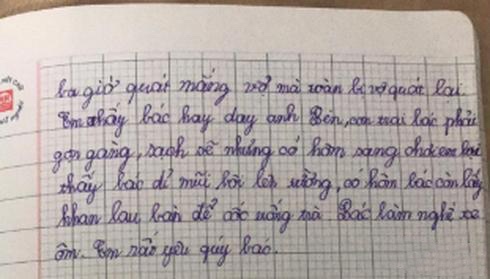 ba giờ quát mắng vợ mà toàn bị vợ quát lại.
Em thấy bác hay dạy anh Bèn, con trai bác phải
gọn gàng, sạch sẽ nhưng có hôm sang chơi em lại
thấy bác dí mũi bôi lên tường, có hôm bác còn lấy
khăn lau bàn để cốc uống trà. Bác làm nghề xe
ôm. Em rất yêu quý bác.